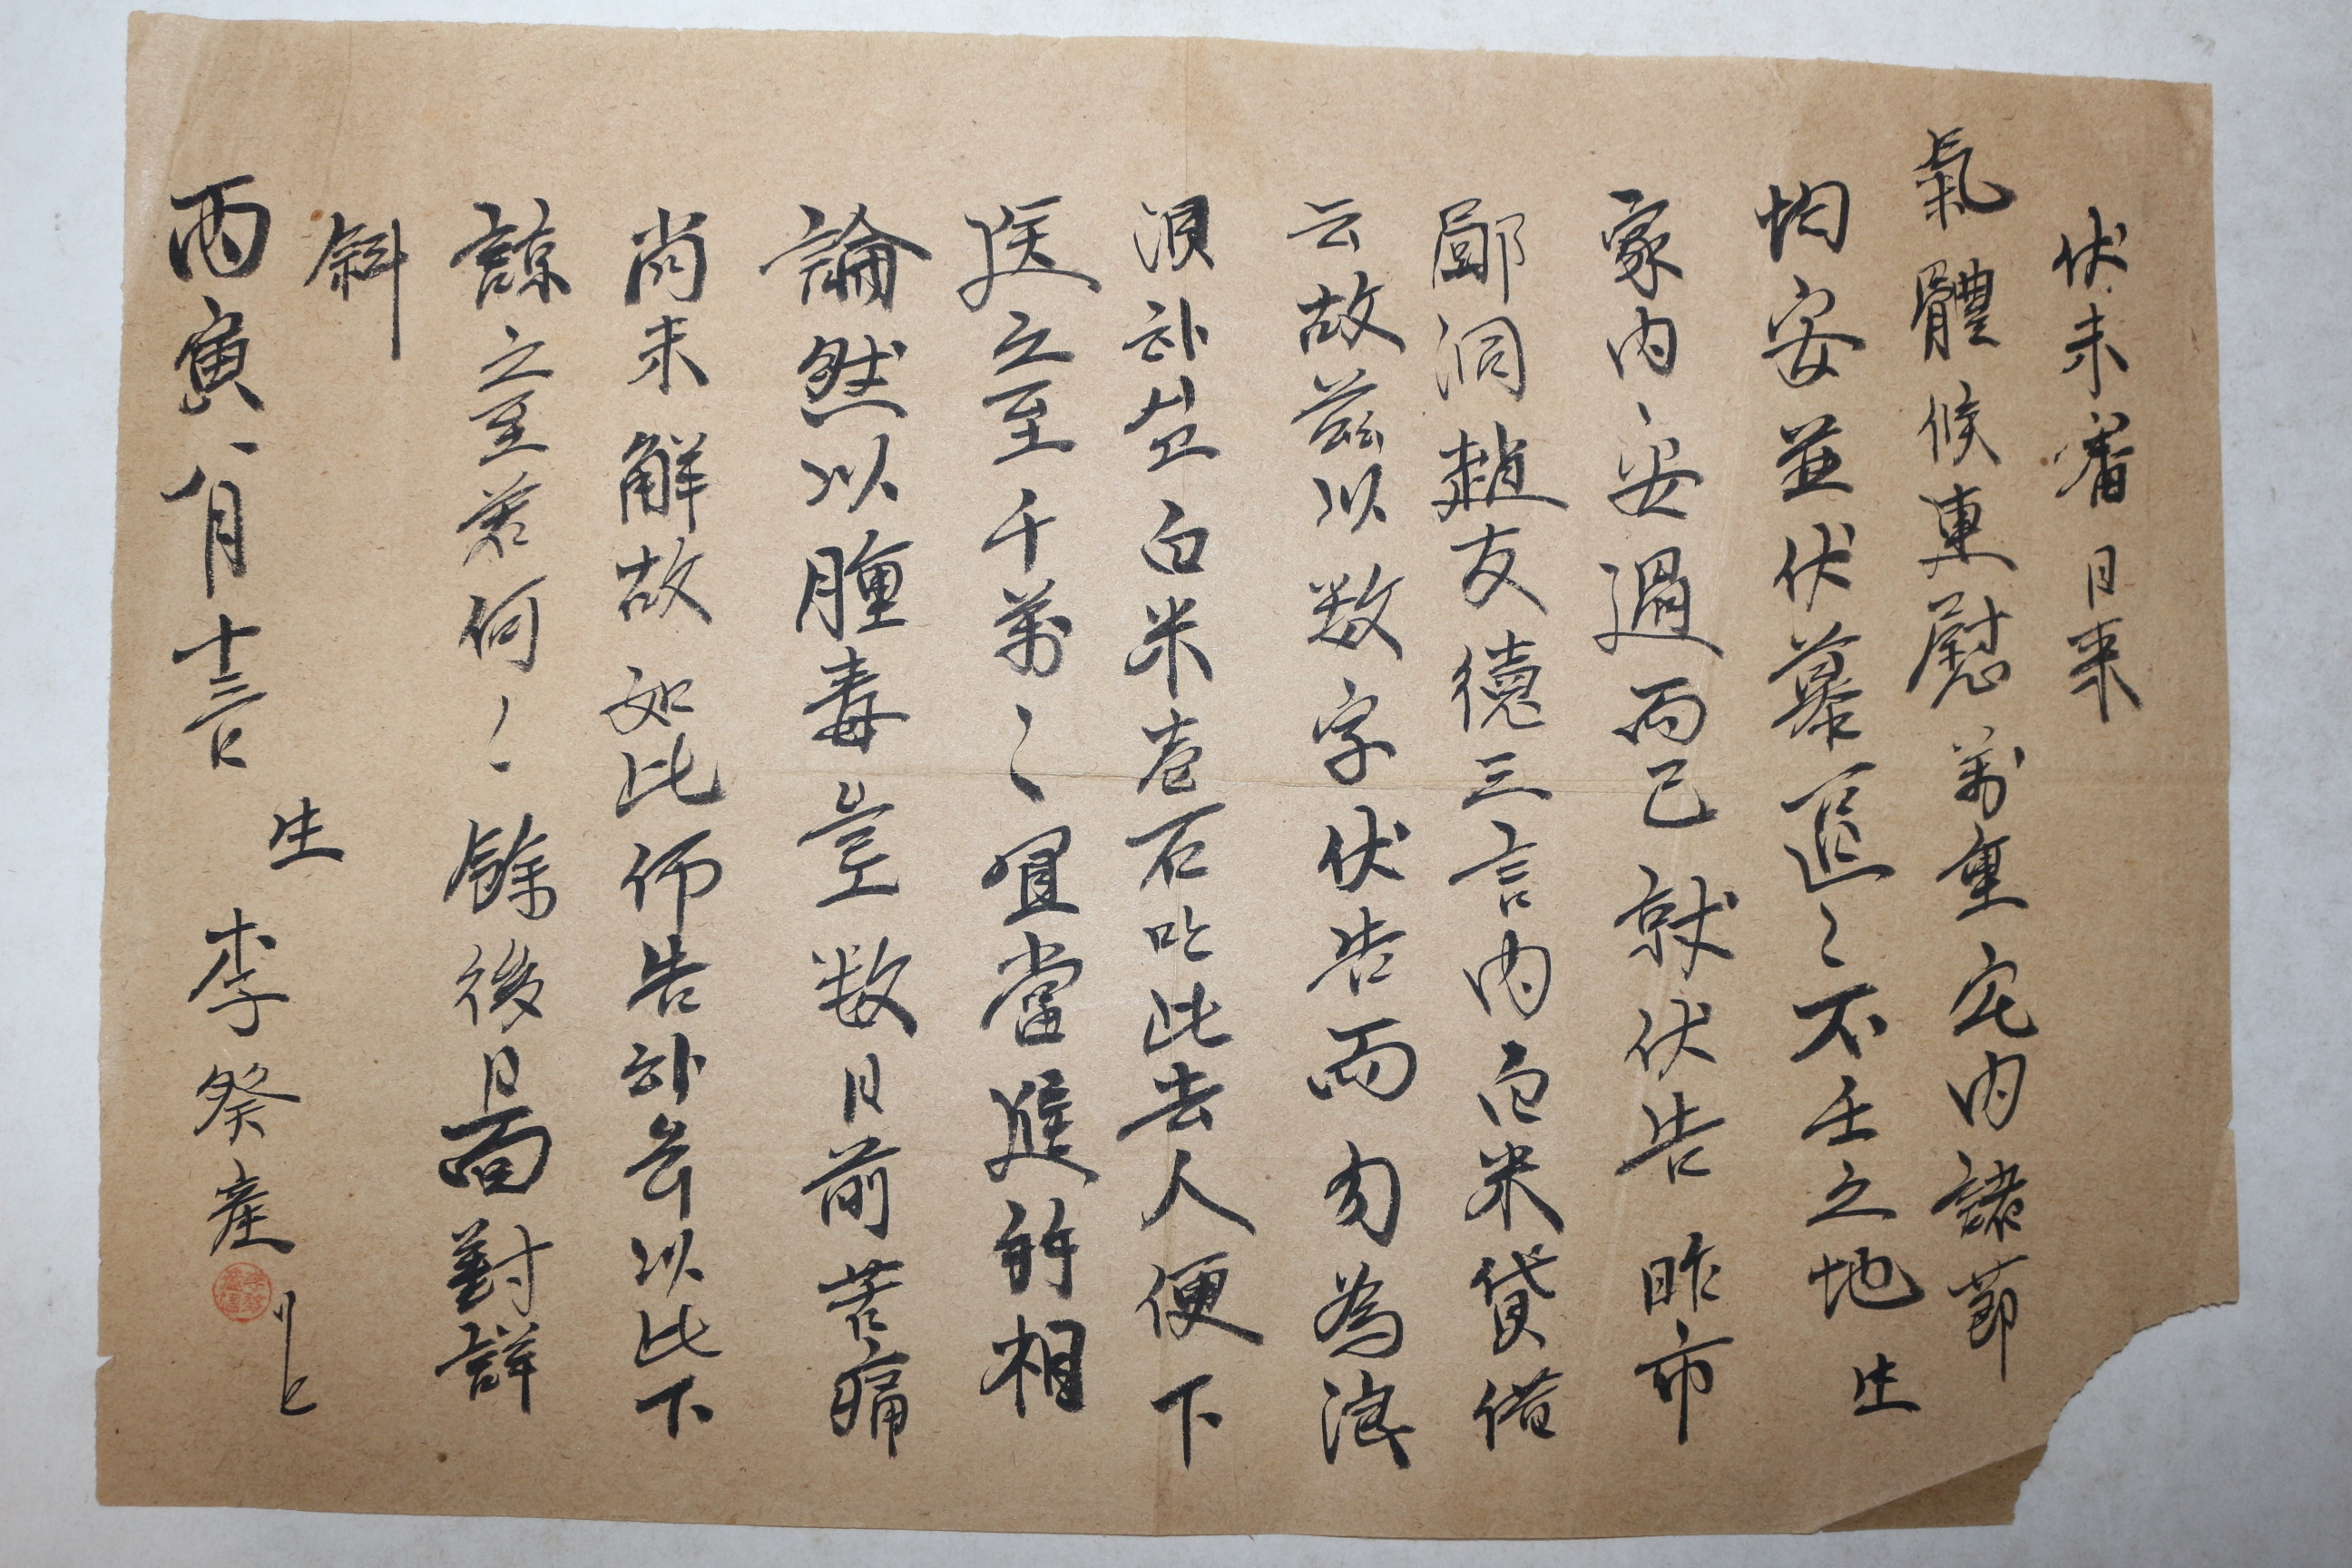 伏未審日來
氣體候連慰萬重宅内諸節
均安並伏慕區〻不任之地 生
家内〻安過而已就伏告昨市
鄙洞趙友德三言内白米貸借
云故茲以数字伏告而勿為浪
浿하실白米壱石吐此去人便下
送之至千萬〻宜當進前相
論然以腫毒삼数日前苦痛
尚未解故如此仰告하오니以此下
諒之至若何〻餘後日面對詳
斜
丙寅八月十三日
生 李癸産 二上